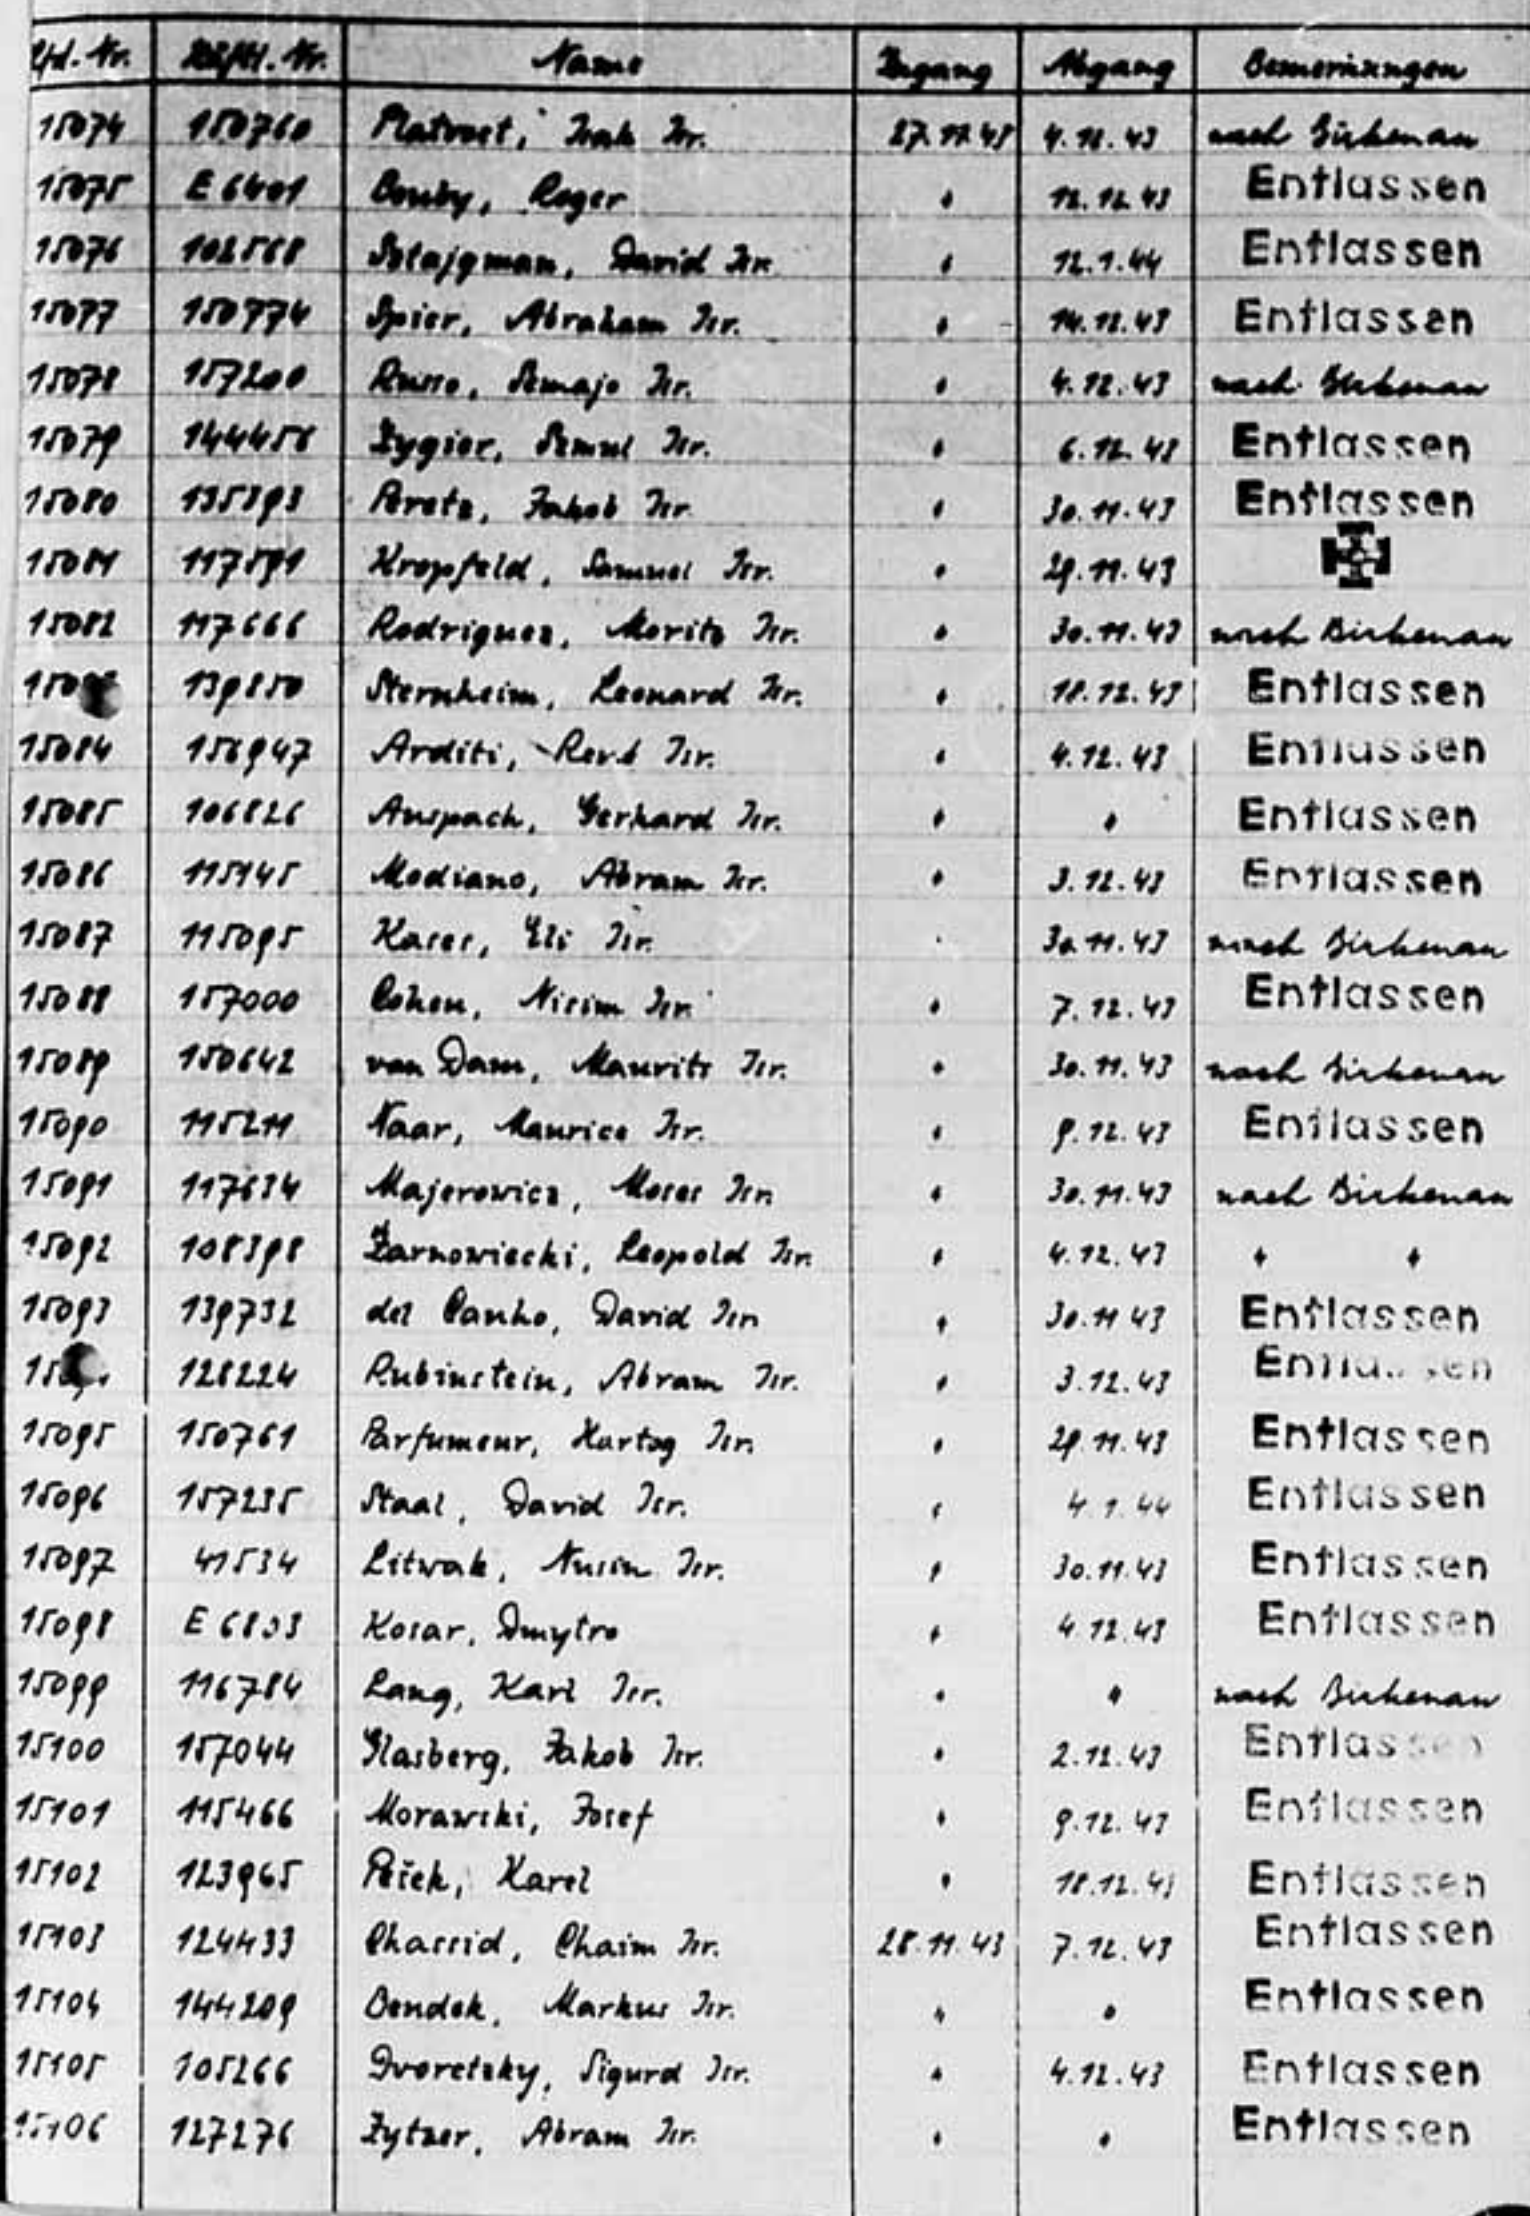 Lfd.-Nr. Häftl.-Nr. Name Zugang Abgang Bemerkungen
15074 150760 Platvoet, Izak Isr. 27.11.43 4.12.43 nach Birkenau
15075 E 6401 Bouby, Roger " 12.12.43 Entlassen
15076 102568 David Isr. " 12.1.44 Entlassen
15077 150774 Spier, Abraham Isr. " 14.12.43 Entlassen
15078 157200 Russo, Semajo Isr. " 4.12.43 nach Birkenau
15079 144456 Zygier, Szmul Isr. " 6.12.43 Entlassen
15080 135393 Peretz, Jakob Isr. " 30.11.43 Entlassen
15081 117591 Kropfeld, Samuel Isr. " 29.11.43
15082 117666 Rodriguez, Moritz Isr. " 30.11.43 nach Birkenau
139850 Sternheim, Leonard Isr. " 18.12.43 Entlassen
15084 156947 Arditi, Isr. " 4.12.43 Entlassen
15085 106826 Anspach, Gerhard Isr. " " Entlassen
15086 115145 Modiano, Abram Isr. " 3.12.43 Entlassen
15087 115095 Kases, Eli Isr. " 30.11.43 nach Birkenau
15088 157000 Cohen, Nisim Isr. " 7.12.43 Entlassen
15089 150642 van Dam, Maurits Isr. " 30.11.43 nach Birkenau
15090 115211 Naar, Maurice Isr. " 9.12.43 Entlassen
15091 117634 Majerowicz, Moses Isr. " 30.11.43 nach Birkenau
15092 108398 Zarnowiecki, Leopold Isr. " 4.12.43 " "
15093 139732 del Canho, David Isr. " 30.11.43 Entlassen
128224 Rubinstein, Abram Isr. " 3.12.43 Entlassen
15095 150761 Parfumeur, Hartog Isr. " 29.11.43 Entlassen
15096 157235 Staal, David Isr. " 4.1.44 Entlassen
15097 41534 Litwak, Nusin Isr. " 30.11.43 Entlassen
15098 E 6803 Kosar, Dmytro " 4.12.43 Entlassen
15099 116784 Lang, Karl Isr. " " nach Birkenau
15100 157044 Glasberg, Jakob Isr. " 2.12.43 Entlassen
15101 115466 Morawski, Josef " 9.12.43 Entlassen
15102 123965 Pešek, Karel " 18.12.43 Entlassen
15103 124433 Chassid, Chaim Isr. 28.11.43 7.12.43 Entlassen
15104 144209 Bendek, Markus Isr. " " Entlassen
15105 105266 Dvoretzky, Sigurd Isr. " 4.12.43 Entlassen
15106 127276 Zytner, Abram Isr. " " Entlassen